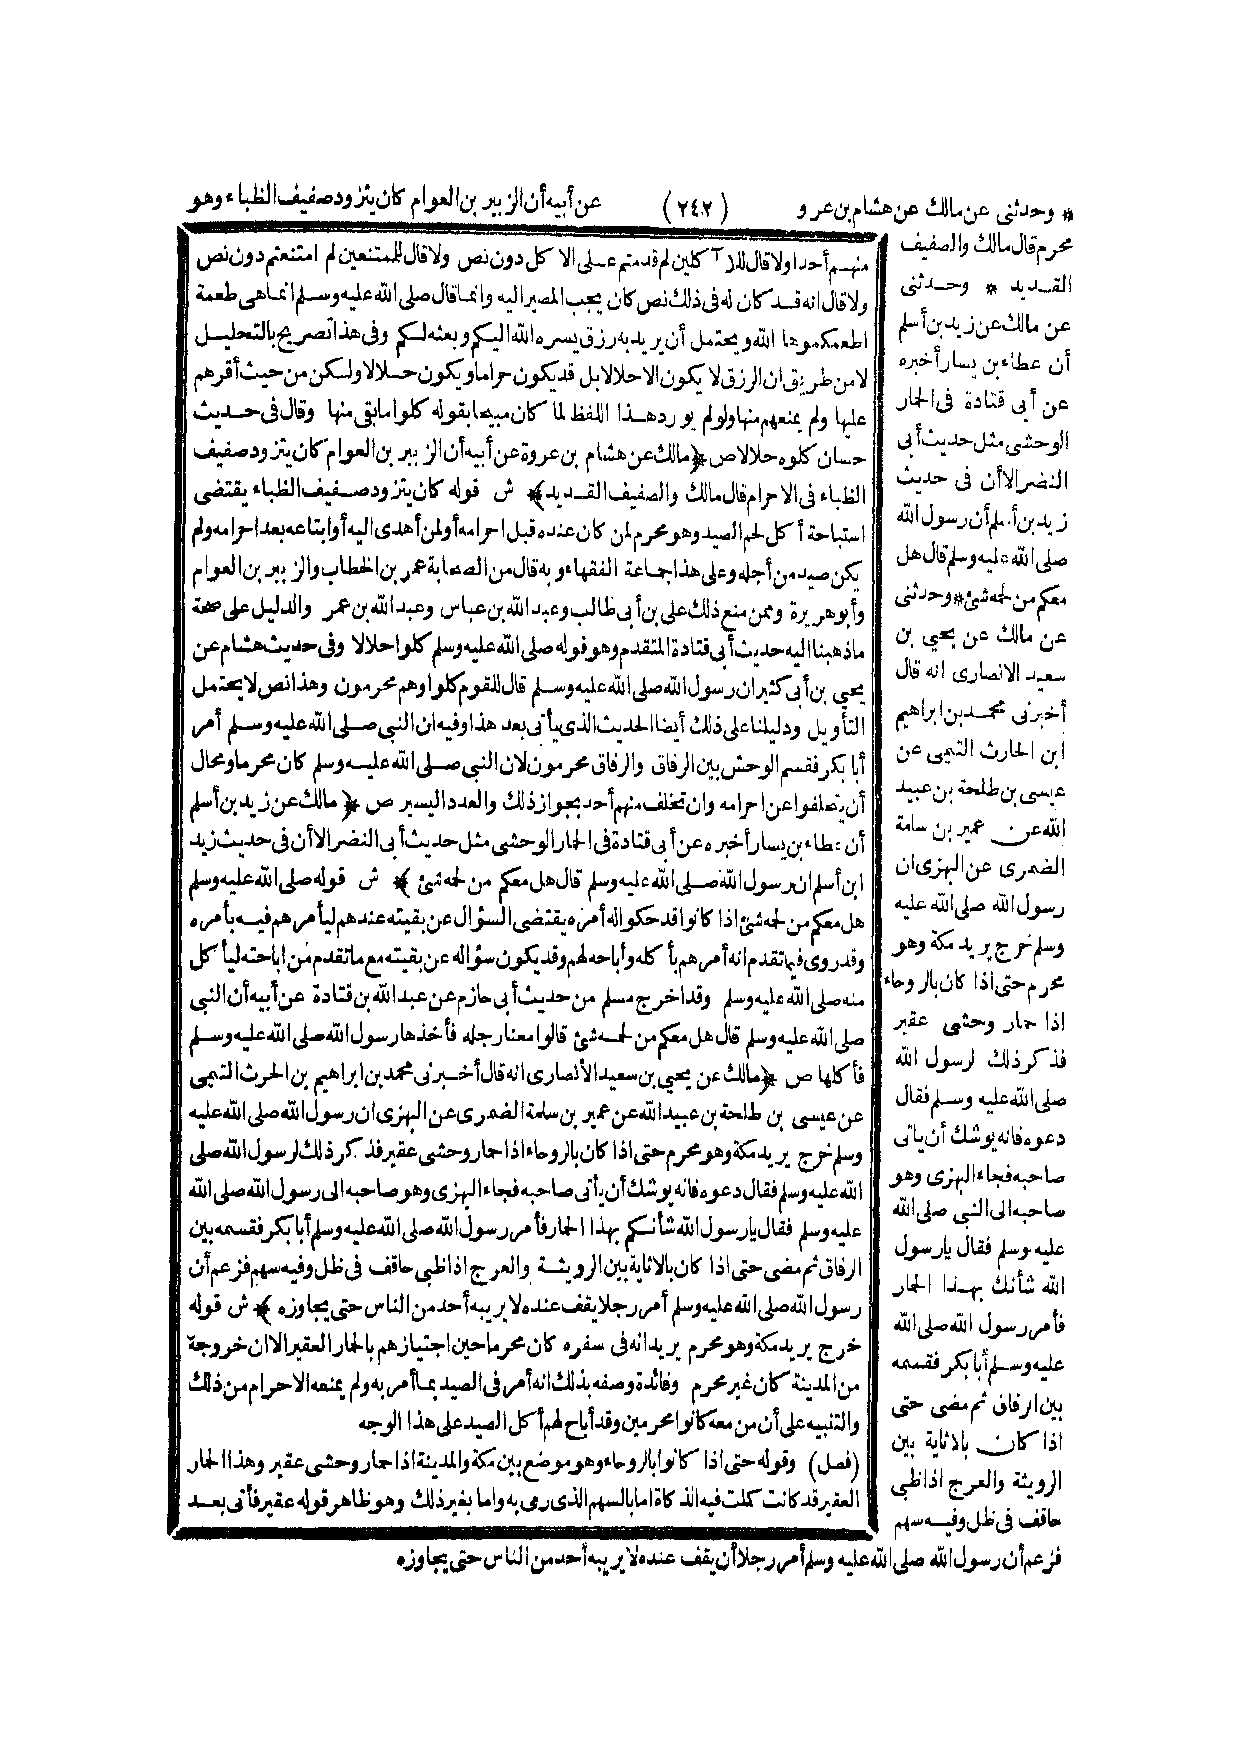 * وحدثنى عن مالك عن هشام بن عرو و (٢٤٢) عن أبيه أن الزبير بن العوام كان يتزود صفيف الظباء وهو
محرم قال مالك والصفيف
القديد * وحدثنى
عن مالك عن زيد بن أسلم
أن عطاء بن يسار أخبره
عن أبى قتادة فى الحار
الوحشى مثل حديث أبى
النضر الاأن فى حديث
زيد بن أسلم أن رسول الله
صلى الله عليه وسلم قال هل
معكم من لحمه شئ * وحدثنى
عن مالك عن يحيى بن
سعيد الانصارى انه قال
أخبرنى محمد بن ابراهيم
ابن الحارث التيمى عن
عيسى بن طلحة بن عبيد
الله عن عمير بن سلمة
الضمرى عن البهزى ان
رسول الله صلى الله عليه
وسلم خرج يريد مكة وهو
محرم حتى اذا كان بالروحاء
اذا حمار وحشى عقير
فذكر ذلك لرسول الله
صلى الله عليه وسلم فقال
دعوه فانه يوشك أن يأتى
صاحبه فجاء البهزى وهو
صاحبه الى النبى صلى الله
عليه وسلم فقال يارسول
الله شأنك بهذا الحار
فأمر رسول الله صلى الله
عليه وسلم أبا بكر فقسمه
بين الرفاق ثم مضى حتى
اذا كان بالاثاية بين
الرويثة والعرج اذا ظبى
حاقف فى ظل وفيه سهم
فزعم أن رسول الله صلى الله عليه وسلم أمر رجلا أن يقف عنده لا يريبه أحد من الناس حتى يجاوزه
منهم أحدا ولا قال للآكلين لم قدمتم على الاكل دون نص ولا قال للمتنعين لم امتنعتم دون نص
ولا قال انه قد كان له فى ذلك نص كان يجب المصير اليه وانما قال صلى الله عليه وسلم انما هى طعمة
اطعمكموها الله ويحتمل أن يريد به رزق يسره الله اليكم وبعثه لكم وفى هذا تصريح بالتحليل
لا من طريق ان الرزق لا يكون الا حلالا بل قد يكون حراما ويكون حلالا ولكن من حيث أقرهم
عليها ولم يمنعهم منها ولو لم يورد هذا اللفظ لما كان مبيحا بقوله كلوا ما بقى منها وقال فى حديث
حسان كلوه حلالا ص ﴿ مالك عن هشام بن عروة عن أبيه أن الزبير بن العوام كان يتزود صفيف
الظباء فى الاحرام قال مالك والصفيف القديد ﴾ ش قوله كان يتزود صفيف الظباء يقتضى
استباحة أكل لحم الصيد وهو محرم لمن كان عنده قبل احرامه أولمن أهدى اليه أو ابتاعه بعد احرامه ولم
يكن صيد من أجله وعلى هذا جماعة الفقهاء وبه قال من الصحابة عمر بن الخطاب والزبير بن العوام
وأبو هريرة وممن منع ذلك على بن أبى طالب وعبد الله بن عباس وعبد الله بن عمر والدليل على صحة
ما ذهبنا اليه حديث أبى قتادة المتقدم وهو قوله صلى الله عليه وسلم كلوا حلالا وفى حديث هشام عن
يحيى بن أبى كثير ان رسول الله صلى الله عليه وسلم قال للقوم كلوا وهم محرمون وهذا نص لا يحتمل
التأويل ودليلنا على ذلك أيضا الحديث الذى يأتى بعد هذا وفيه ان النبى صلى الله عليه وسلم أمر
أبا بكر فقسم الوحش بين الرفاق والرفاق محرمون لان النبى صلى الله عليه وسلم كان محرما ومحال
أن يتخلفوا عن احرامه وان تخلف منهم أحد بجواز ذلك والعدد اليسير ص ﴿ مالك عن زيد بن أسلم
أن عطاء بن يسار أخبره عن أبى قتادة فى الحار الوحشى مثل حديث أبى النضر الاأن فى حديث زيد
ابن أسلم ان رسول الله صلى الله عليه وسلم قال هل معكم من لحمه شئ ﴾ ش قوله صلى الله عليه وسلم
هل معكم من لحمه شئ اذا كانوا قد حكوا له أمره يقتضى السؤال عن بقيته عندهم ليأمرهم فيه بأمره
وقد روى فيما تقدم انه أمرهم بأكله وأباحه لهم وقد يكون سؤاله عن بقيته مع ما تقدم من اباحته ليأكل
منه صلى الله عليه وسلم وقد اخرج مسلم من حديث أبى حازم عن عبد الله بن قتادة عن أبيه أن النبى
صلى الله عليه وسلم قال هل معكم من لحمه شئ قالوا معنا رجله فأخذها رسول الله صلى الله عليه وسلم
فأكلها ص ﴿ مالك عن يحيى بن سعيد الأنصارى انه قال أخبرنى محمد بن ابراهيم بن الحرث التيمى
عن عيسى بن طلحة بن عبيد الله عن عمير بن سلمة الضمرى عن البهزى ان رسول الله صلى الله عليه
وسلم خرج يريد مكة وهو محرم حتى اذا كان بالروحاء اذا حمار وحشى عقير فذكر ذلك لرسول الله صلى
الله عليه وسلم فقال دعوه فانه يوشك أن يأتى صاحبه فجاء البهزى وهو صاحبه الى رسول الله صلى الله
عليه وسلم فقال يارسول الله شأنكم بهذا الحار فأمر رسول الله صلى الله عليه وسلم أبا بكر فقسمه بين
الرفاق ثم مضى حتى اذا كان بالاثاية بين الرويثة والعرج اذا ظبى حاقف فى ظل وفيه سهم فزعم أن
رسول الله صلى الله عليه وسلم أمر رجلا يقف عنده لا يريبه أحد من الناس حتى يجاوزه ﴾ ش قوله
خرج يريد مكة وهو محرم يريد انه فى سفره كان محرما حين اجتيازهم بالحار العقير الا ان خروجه
من المدينة كان غير محرم وفائدة وصفه بذلك انه أمر فى الصيد بما أمر به ولم يمنعه الاحرام من ذلك
والتنبيه على أن من معه كانوا محرمين وقد أباح لهم أكل الصيد على هذا الوجه
(فصل) وقوله حتى اذا كانوا بالروحاء وهو موضع بين مكة والمدينة اذا حمار وحشى عقير وهذا الحار
العقير قد كانت كملت فيه الذكاة اما بالسهم الذى رمى به واما بغير ذلك وهو ظاهر قوله عقير فأتى بعد